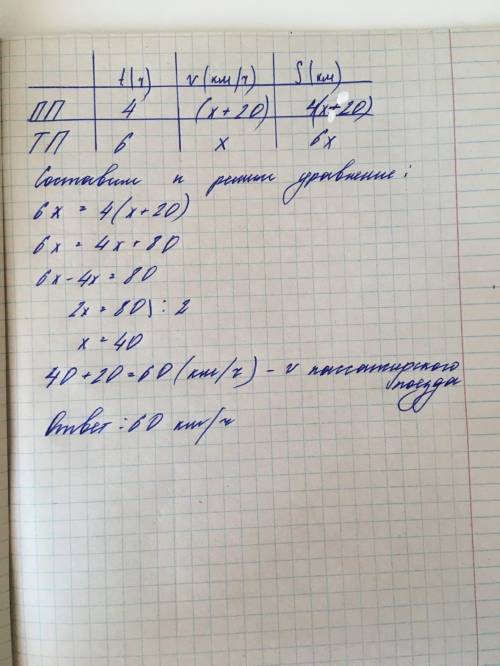 t(ч) v(км/ч) S(км)
ПП 4 (x+20) 4(x+20)
ТП 6 x 6x
Составим и решим уравнение:
6x = 4(x+20)
6x = 4x+80
6x-4x=80
2x=80 \ :2
x=40
40+20=60(км/ч) - v пассажирского
поезда
Ответ: 60 км/ч